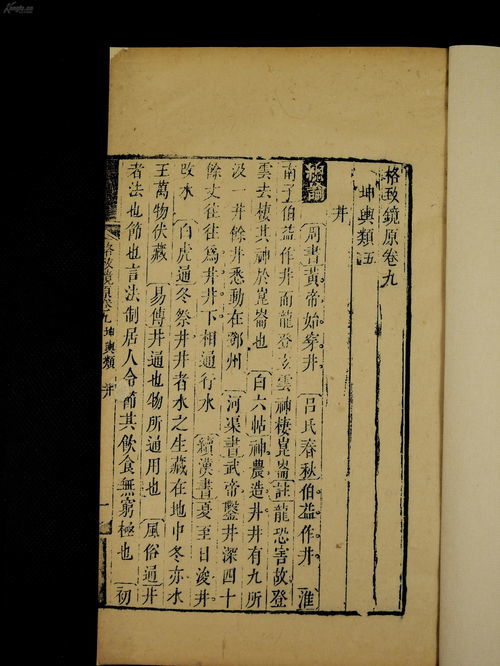 格致鏡原卷九
坤輿類五
井
總論 周書黃帝始穿井 呂氏春秋伯益作井 淮
南子伯益作井而龍登玄雲神棲崑崙註龍恐害故登
雲去棲其神於崑崙也 白六帖神農造井井有九所
汲一井餘井悉動在鄧州 河渠書武帝鑿井深四十
餘丈往往爲井井下相通行水 續漢書夏至日浚井
改水 白虎通冬祭井井者水之生藏在地中冬亦水
王萬物伏藏 易傳井通也物所通用也 風俗通井
者法也節也言法制居人令節其飲食無窮極也 初
格致鏡原卷九 坤輿類 井 一
Kongfz.cn